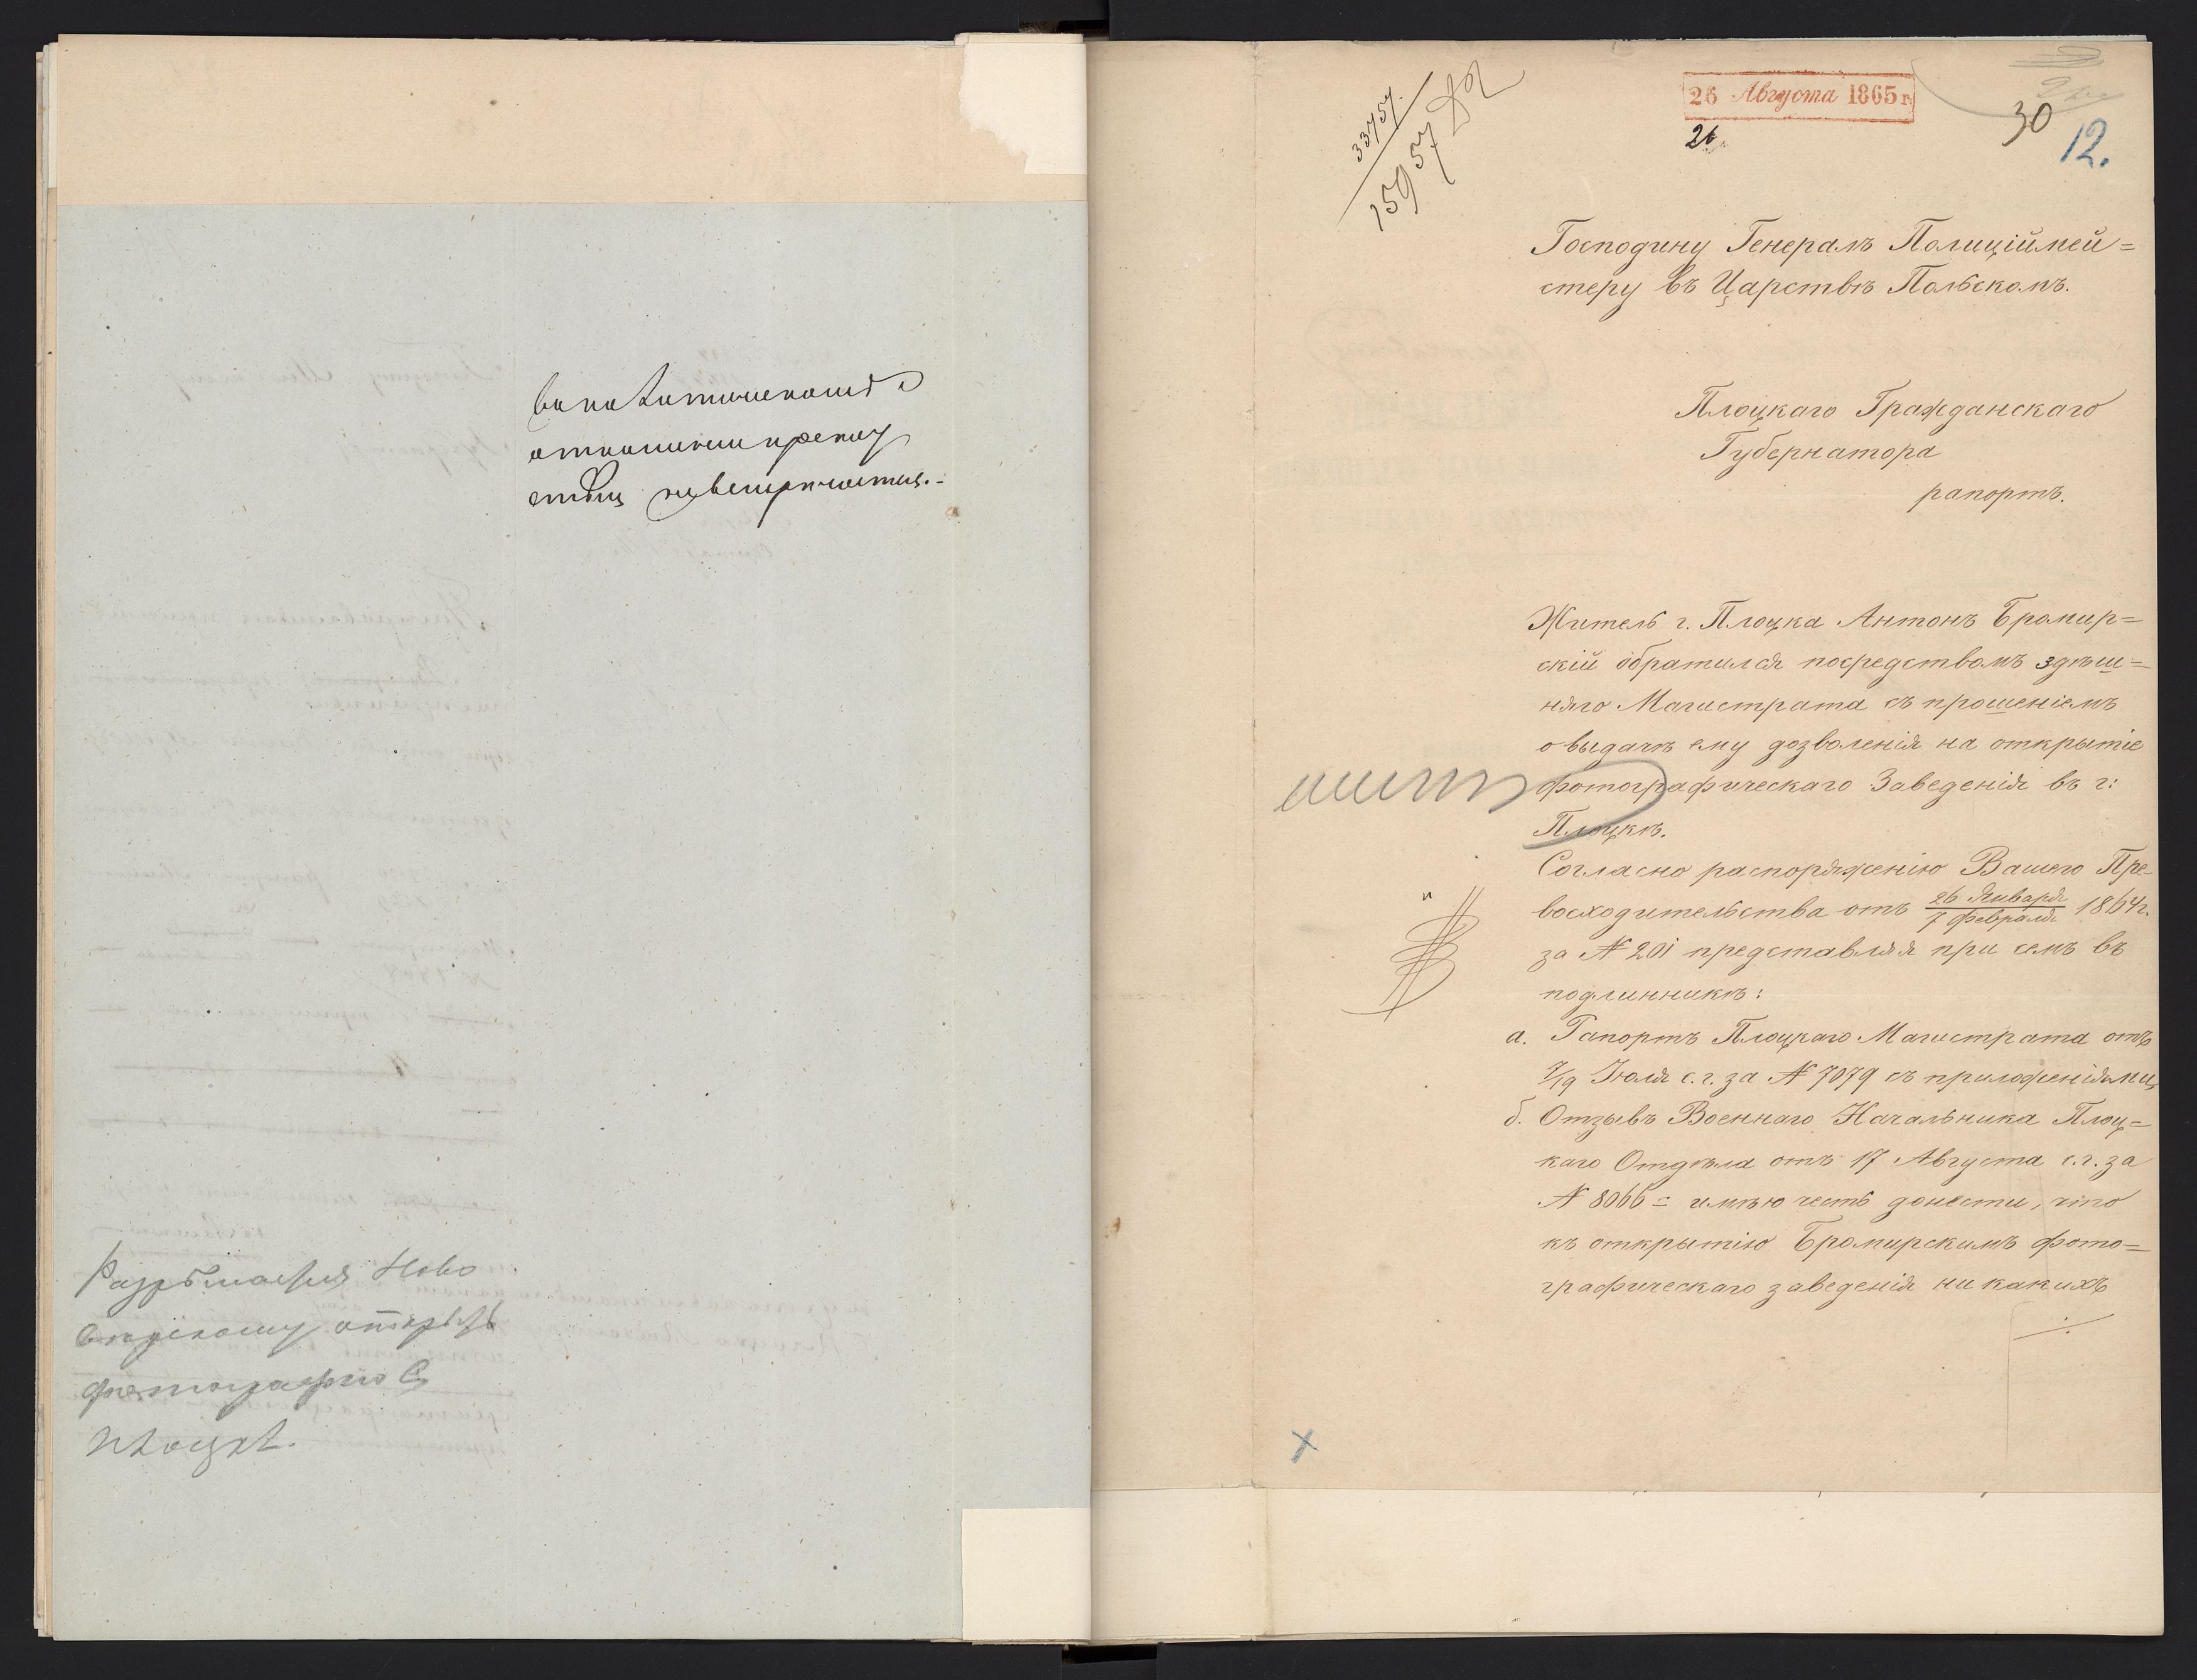 отношении препят
ствия не встречается.-
Разрешается Ново
открыть
фотографию въ
Плоцке.
33757.
15957
26 Августа 1865 г.
26
30
12.
Господину Генералъ Полиціймей=
стеру въ Царствѣ Польскомъ.
Плоцкаго Гражданскаго
Губернатора
рапортъ.
Житель г. Плоцка Антонъ Бромир=
скій обратился посредствомъ здѣш=
няго Магистрата съ прошеніемъ
о выдачѣ ему дозволенія на открытіе
фотографическаго Заведенія въ г:
Плоцкѣ.
Согласно распоряженію Вашего Пре-
восходительства отъ 26 Января/7 Февраля 1864 г.
за № 201 представляя при семъ въ
подлинникѣ:
а. Рапортъ Плоцкаго Магистрата отъ
7/19 Іюля с.г. за № 7079 съ приложеніями,
б. Отзывъ Военнаго Начальника Плоц=
каго Отдѣла отъ 17 Августа с.г. за
№ 8066 = имѣю честь донести, что
къ открытію Бромирскимъ фото=
графическаго заведенія ни какихъ